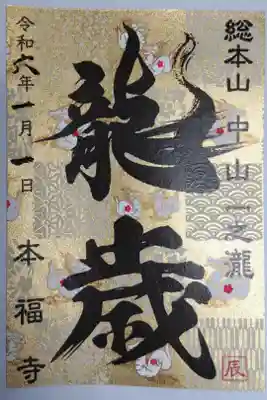 総本山 中山一之瀧
龍歳
令和六年一月一日 本福寺
辰